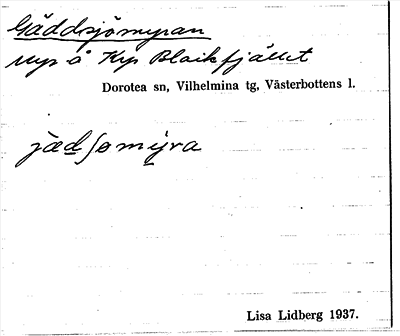 Gäddsjömyran
myr å Krp Blaikfjället
Dorotea sn, Vilhelmina tg, Västerbottens l.
jædʃømyra
Lisa Lidberg 1937.